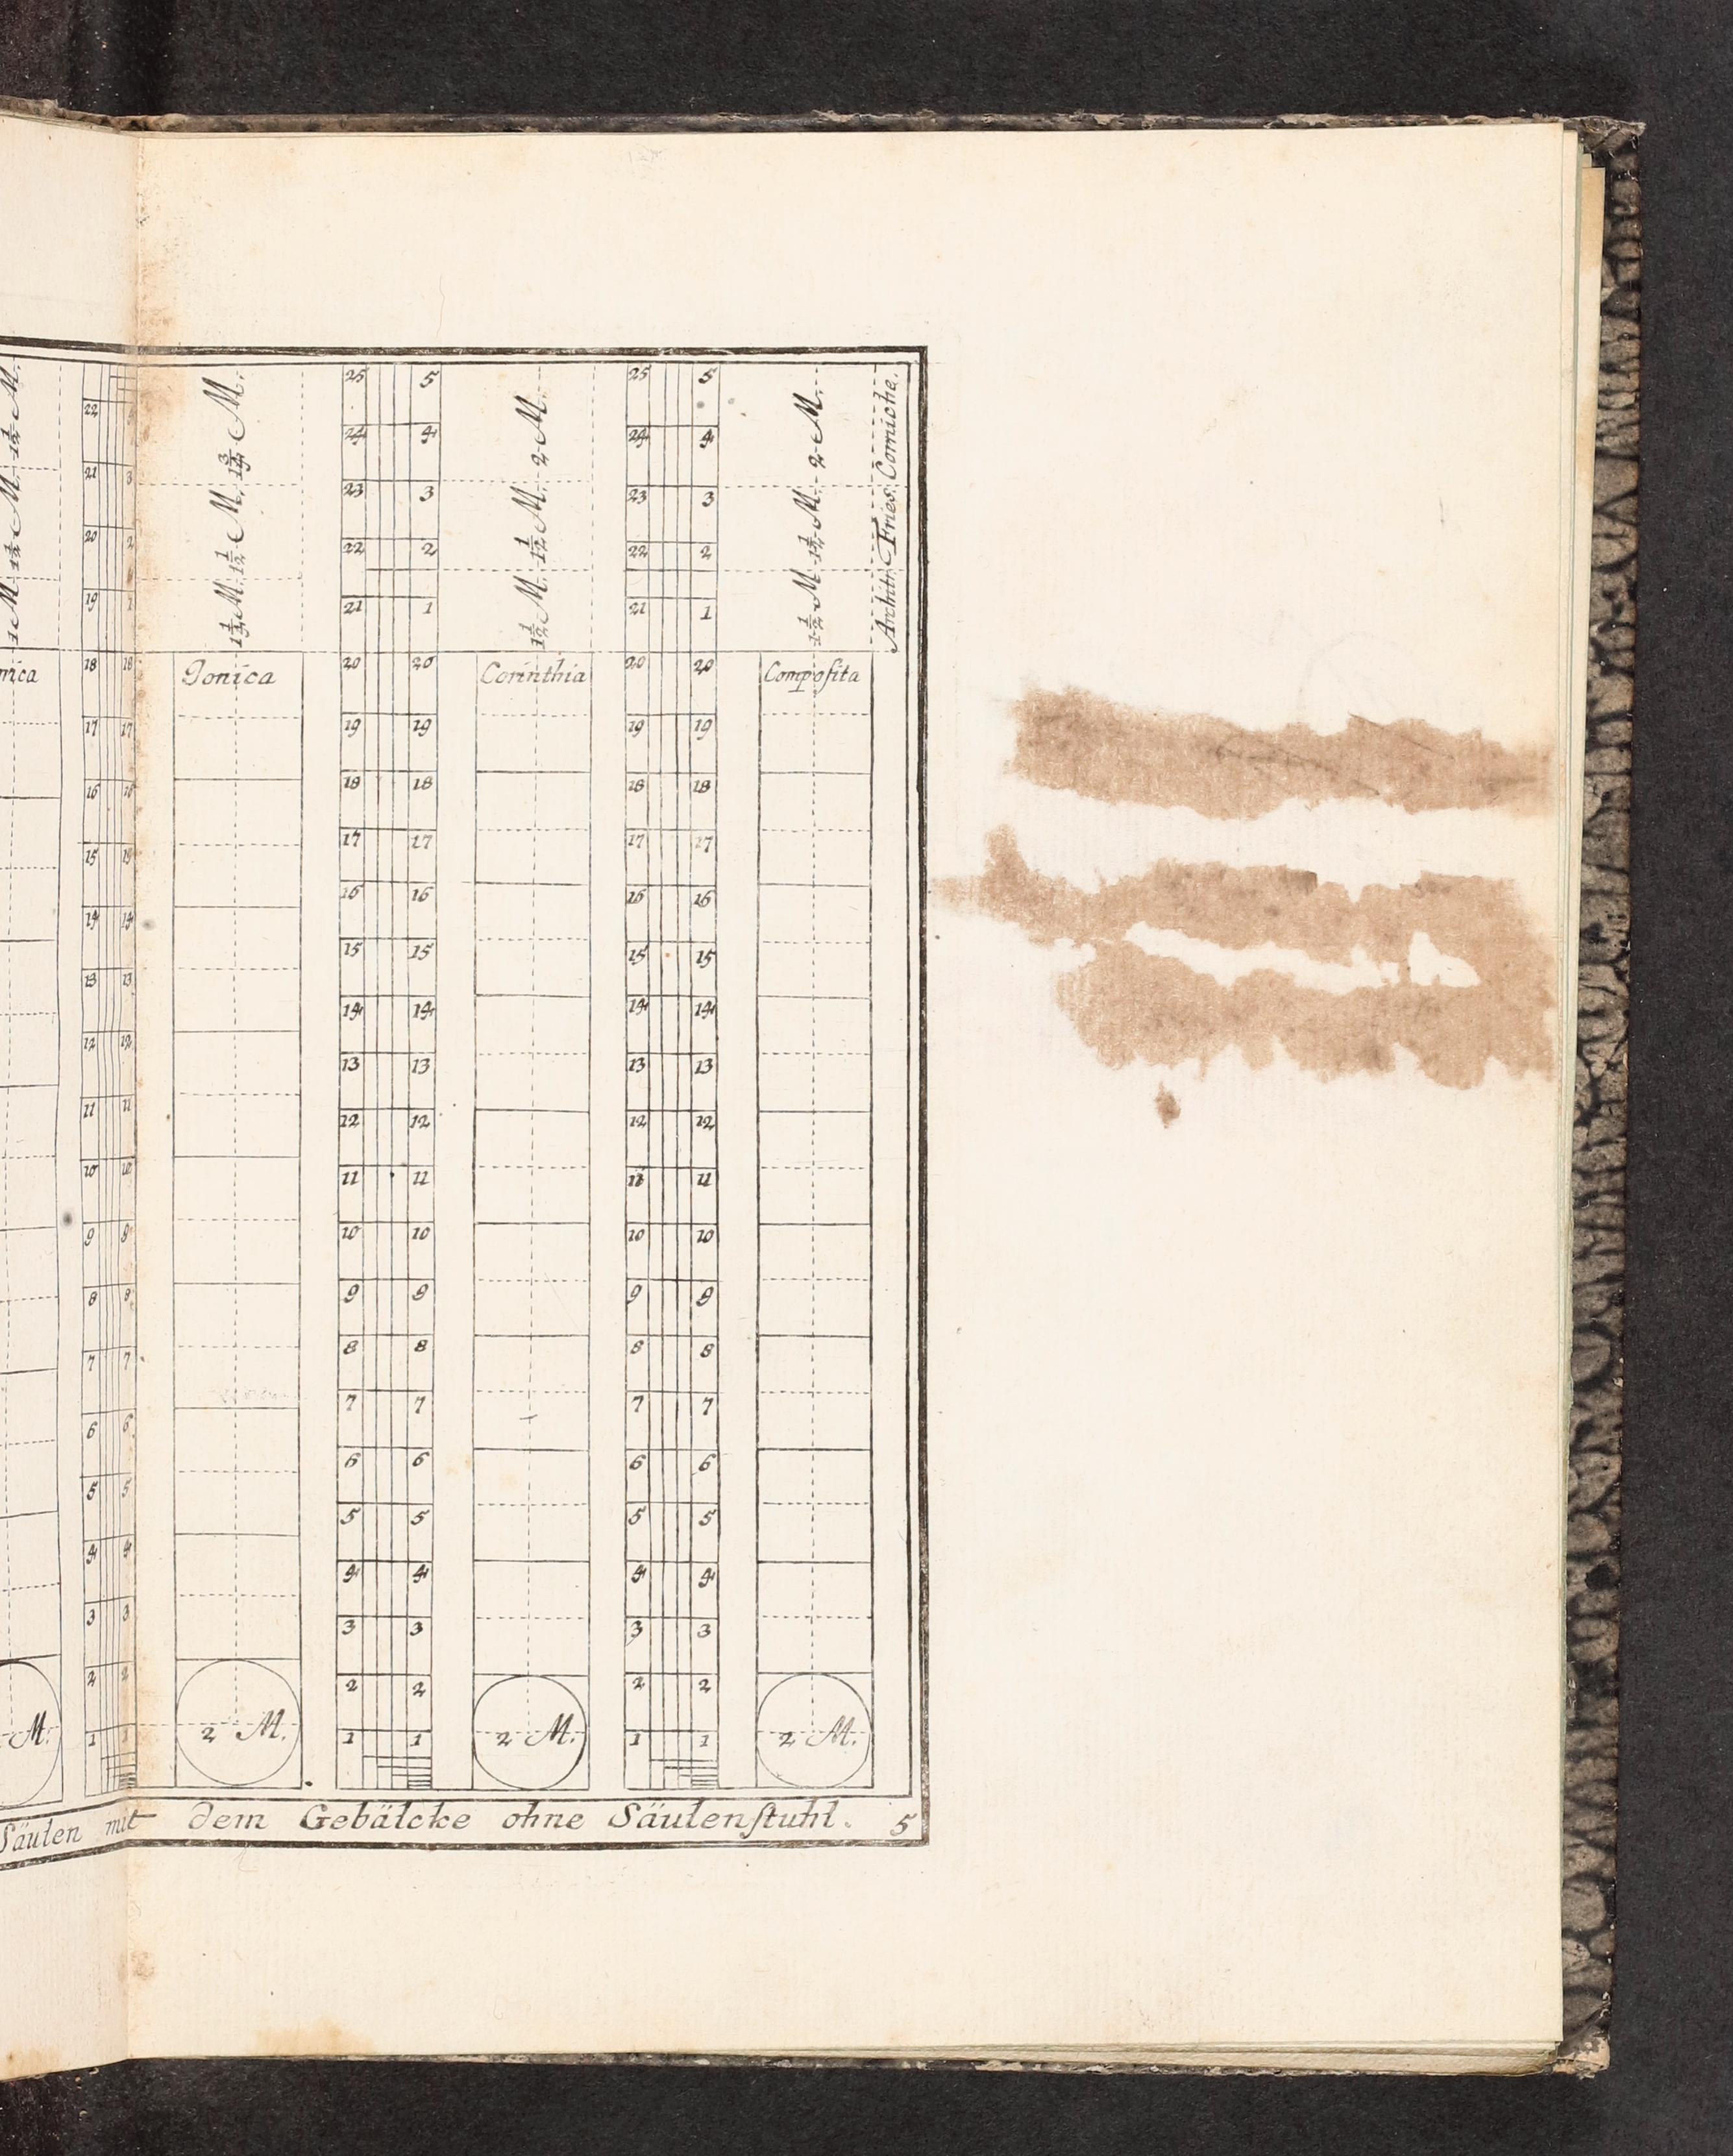 1 M. 1½ M. 1½ M.
22
21 3
20 2
19 1
1⅓ M. 1½ M. 1 3/12 M.
25 5
24 4
23 3
22 2
21 1
1½ M. 1½ M. 2 M.
25 5
24 4
23 3
22 2
21 1
1½ M. 1½ M. 2 M.
Archit. Fries. Corniche.
18 18 Jonica 20 20 Corinthia 20 20 Composita
17 17 19 19 19 19
16 16 18 18 18 18
15 15 17 17 17 17
14 14 16 16 16 16
13 13 15 15 15 15
12 12 14 14 14 14
11 11 13 13 13 13
10 10 12 12 12 12
9 9 11 11 11 11
8 8 10 10 10 10
7 7 9 9 9 9
6 6 8 8 8 8
5 5 7 7 7 7
4 4 6 6 6 6
3 3 5 5 5 5
2 2 4 4 4 4
1 1 3 3 3 3
2 2 2 2
M. 2 M. 1 1 2 M. 1 1 2 M.
Säulen mit dem Gebälcke ohne Säulenſtuhl. 5